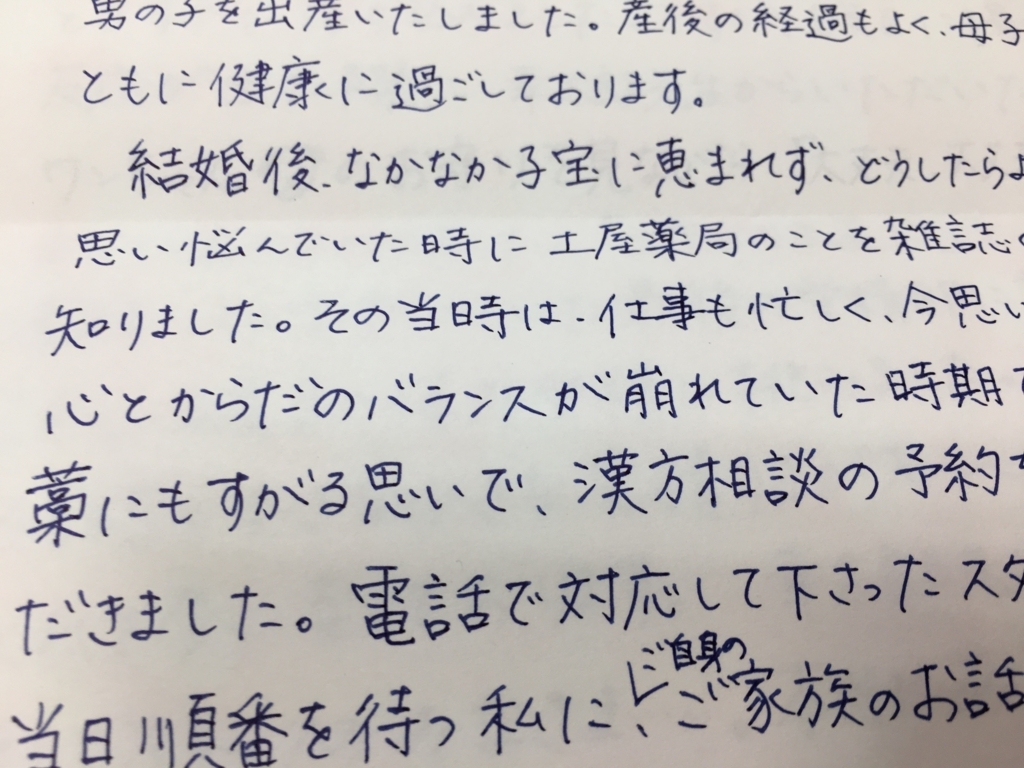 男の子を出産いたしました。産後の経過もよく、母子
ともに健康に過ごしております。
結婚後、なかなか子宝に恵まれず、どうしたらよ
思い悩んでいた時に土屋薬局のことを雑誌の
知りました。その当時は、仕事も忙しく、今思い
心とからだのバランスが崩れていた時期で
藁にもすがる思いで、漢方相談の予約を
だきました。電話で対応して下さったスタ
ご自身の
当日順番を待つ私に、ご家族のお話